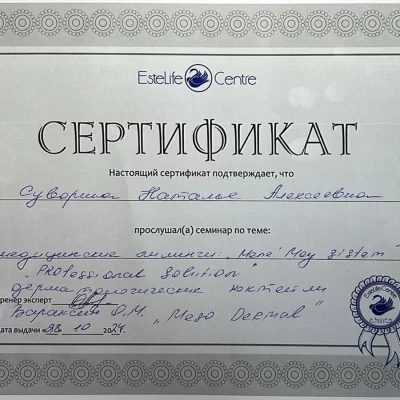 EsteLife Centre
СЕРТИФИКАТ
Настоящий сертификат подтверждает, что
Суворина Наталье Алексеевна
прослушал(а) семинар по теме:
медицинские пилинги: Mene'Moy sistem
"Professional solution"
дерматологические коктейли
ренер эксперт
О.М. "Мезо
ата выдачи «28» 10 2024
EsteLife Centre